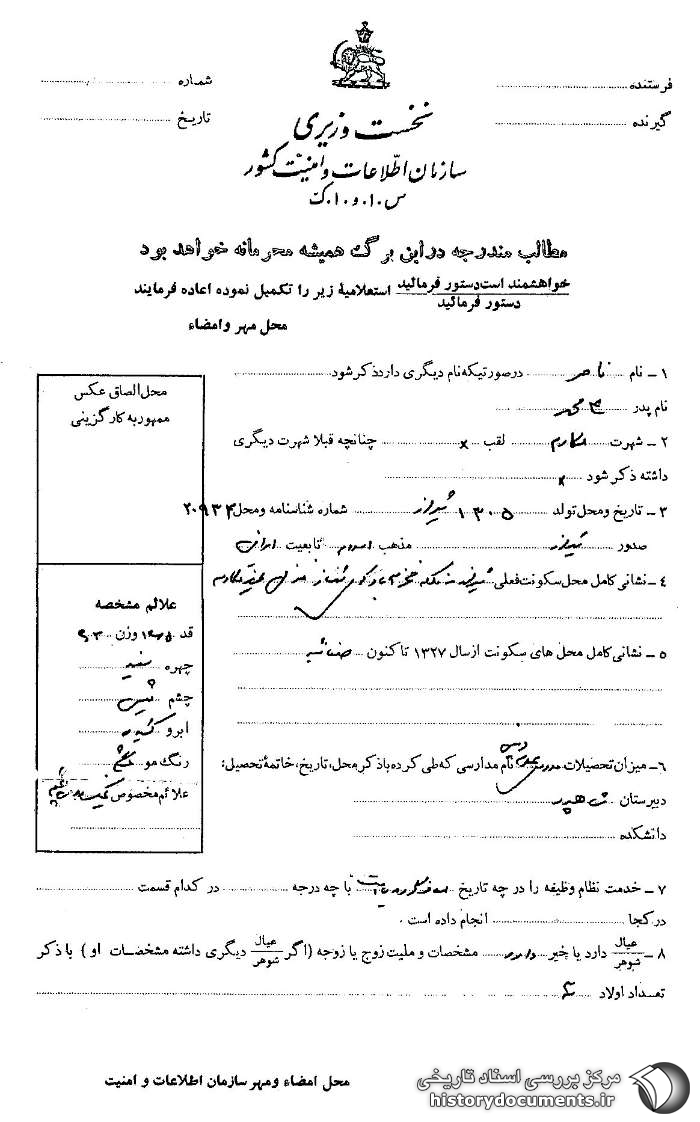 فرستنده
شماره
گیرنده
تاریخ
نخست وزیری
سازمان اطلاعات و امنیت کشور
س.۱۰.و.۱۰.ک
مطالب مندرجه در این برگ همیشه محرمانه خواهد بود
خواهشمند است دستور فرمائید
دستور فرمائید
استعلامیهٔ زیر را تکمیل نموده اعاده فرمایند
محل مهر وامضاء
۱ــ نام ناصر در صورتیکه نام دیگری دارد ذکر شود
نام پدر محمد
۲ــ شهرت مکارم لقب x چنانچه قبلا شهرت دیگری
داشته ذکر شود x
۳ــ تاریخ ومحل تولد ۱۳۰۵ شیراز شماره شناسنامه ومحل ۲۰۹۳۴
صدور شیراز مذهب اسلام تابعیت ایرانی
۴ــ نشانی کامل محل سکونت فعلی شیراز
۵ــ نشانی کامل محل های سکونت از سال ۱۳۲۷ تا کنون
۶ــ میزان تحصیلات نام مدارسی که طی کرده با ذکر محل، تاریخ، خاتمهٔ تحصیل:
دبیرستان
دانشکده
محل الصاق عکس
ممهور به کارگزینی
علائم مشخصه
قد وزن
چهره سفید
چشم
ابرو
رنگ مو
علائم مخصوص
۷ــ خدمت نظام وظیفه را در چه تاریخ با چه درجه در کدام قسمت
در کجا انجام داده است .
۸ــ عیال
شوهر
دارد یا خیر دارد مشخصات و ملیت زوج یا زوجه (اگر عیال
شوهر
دیگری داشته مشخصات او ) با ذکر
تعداد اولاد
محل امضاء ومهر سازمان اطلاعات و امنیت
مرکز بررسی اسناد تاریخی
historydocuments.ir